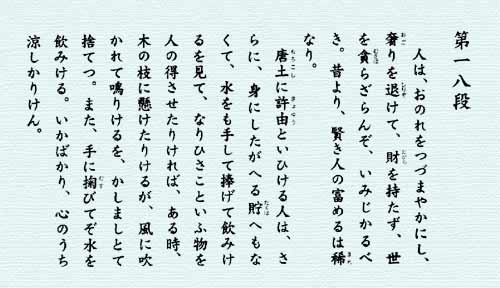 第一八段
人は、おのれをつづまやかにし、
奢りを退けて、財を持たず、世
を貪らざらんぞ、いみじかるべ
き。昔より、賢き人の富めるは稀
なり。
唐土に許由といひける人は、さ
らに、身にしたがへる貯へもな
くて、水をも手して捧げて飲みけ
るを見て、なりひさこといふ物を
人の得させたりければ、ある時、
木の枝に懸けたりけるが、風に吹
かれて鳴りけるを、かしましとて
捨てつ。また、手に掬びてぞ水を
飲みける。いかばかり、心のうち
涼しかりけん。